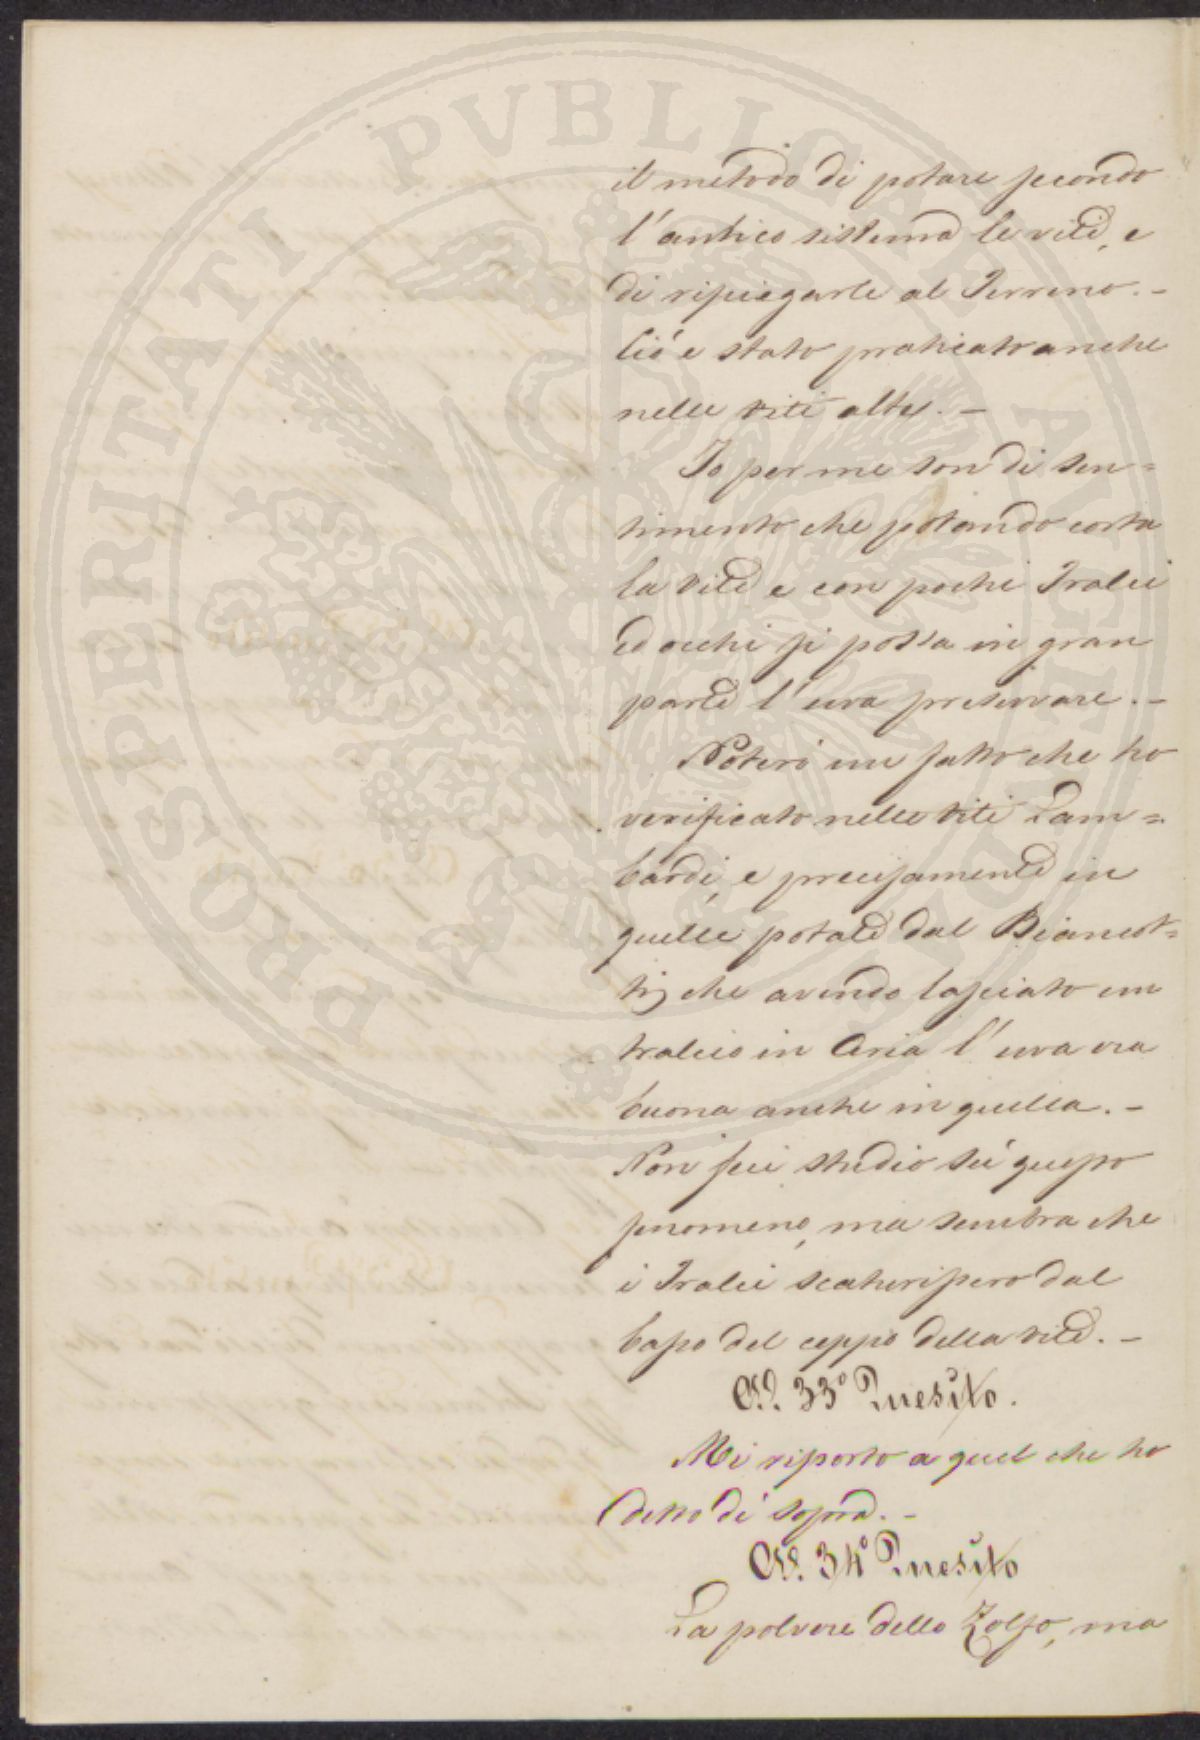 il metodo di potare secondo
l'antico sistema le viti, e
di ripiegarle al Terreno. -
Ciò e stato praticato anche
nelle viti alte. -
Io per me son di sen=
timento che potando corta
la vite e con pochi Tralci
ed occhi si possa in gran
parte l'uva preservare. -
Noterò un fatto che ho
verificato nelle viti Lam=
bardi, e precisamente in
quelle potate dal Biancot=
ti, che avendo lasciato un
tralcio in Aria l'uva era
buona anche in quella. -
Non feci studio sù questo
fenomeno, ma sembra che
i Tralci scaturissero dal
basso del ceppo della vite. -
Al 33° Quesito.
Mi riporto a quel che ho
detto di sopra. -
Al 34° Quesito
La polvere dello Zolfo, ma
PROSPERITATI PVBLICAE AVGENDAE